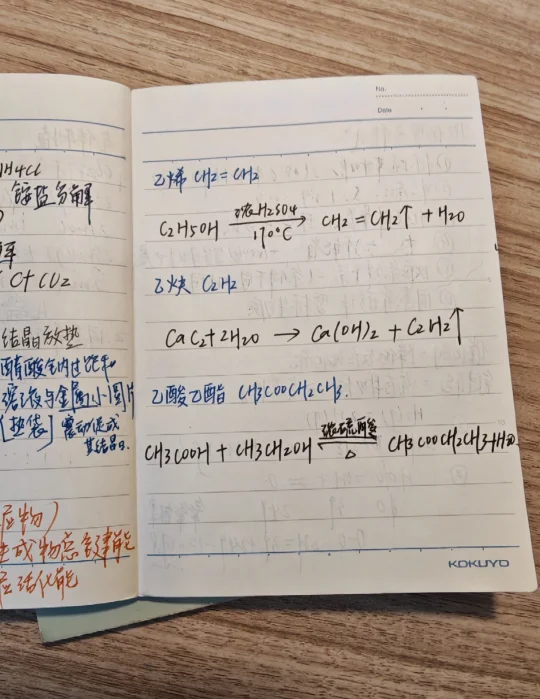 H4Cl
铵盐分解
解
C+CO2
结晶放热
醋酸钠过饱和
溶液与金属小圆片
[热袋] 震动促成
其结晶。
应物)
生成物总键能
应活化能
No.
Date
乙烯 CH2=CH2
C2H5OH 浓H2SO4 170°C → CH2=CH2↑ + H2O
乙炔 C2H2
CaC2+2H2O → Ca(OH)2 + C2H2↑
乙酸乙酯 CH3COOCH2CH3.
CH3COOH + CH3CH2OH 浓硫酸 ⇌ △ CH3COOCH2CH3+H2O.
KOKUYO